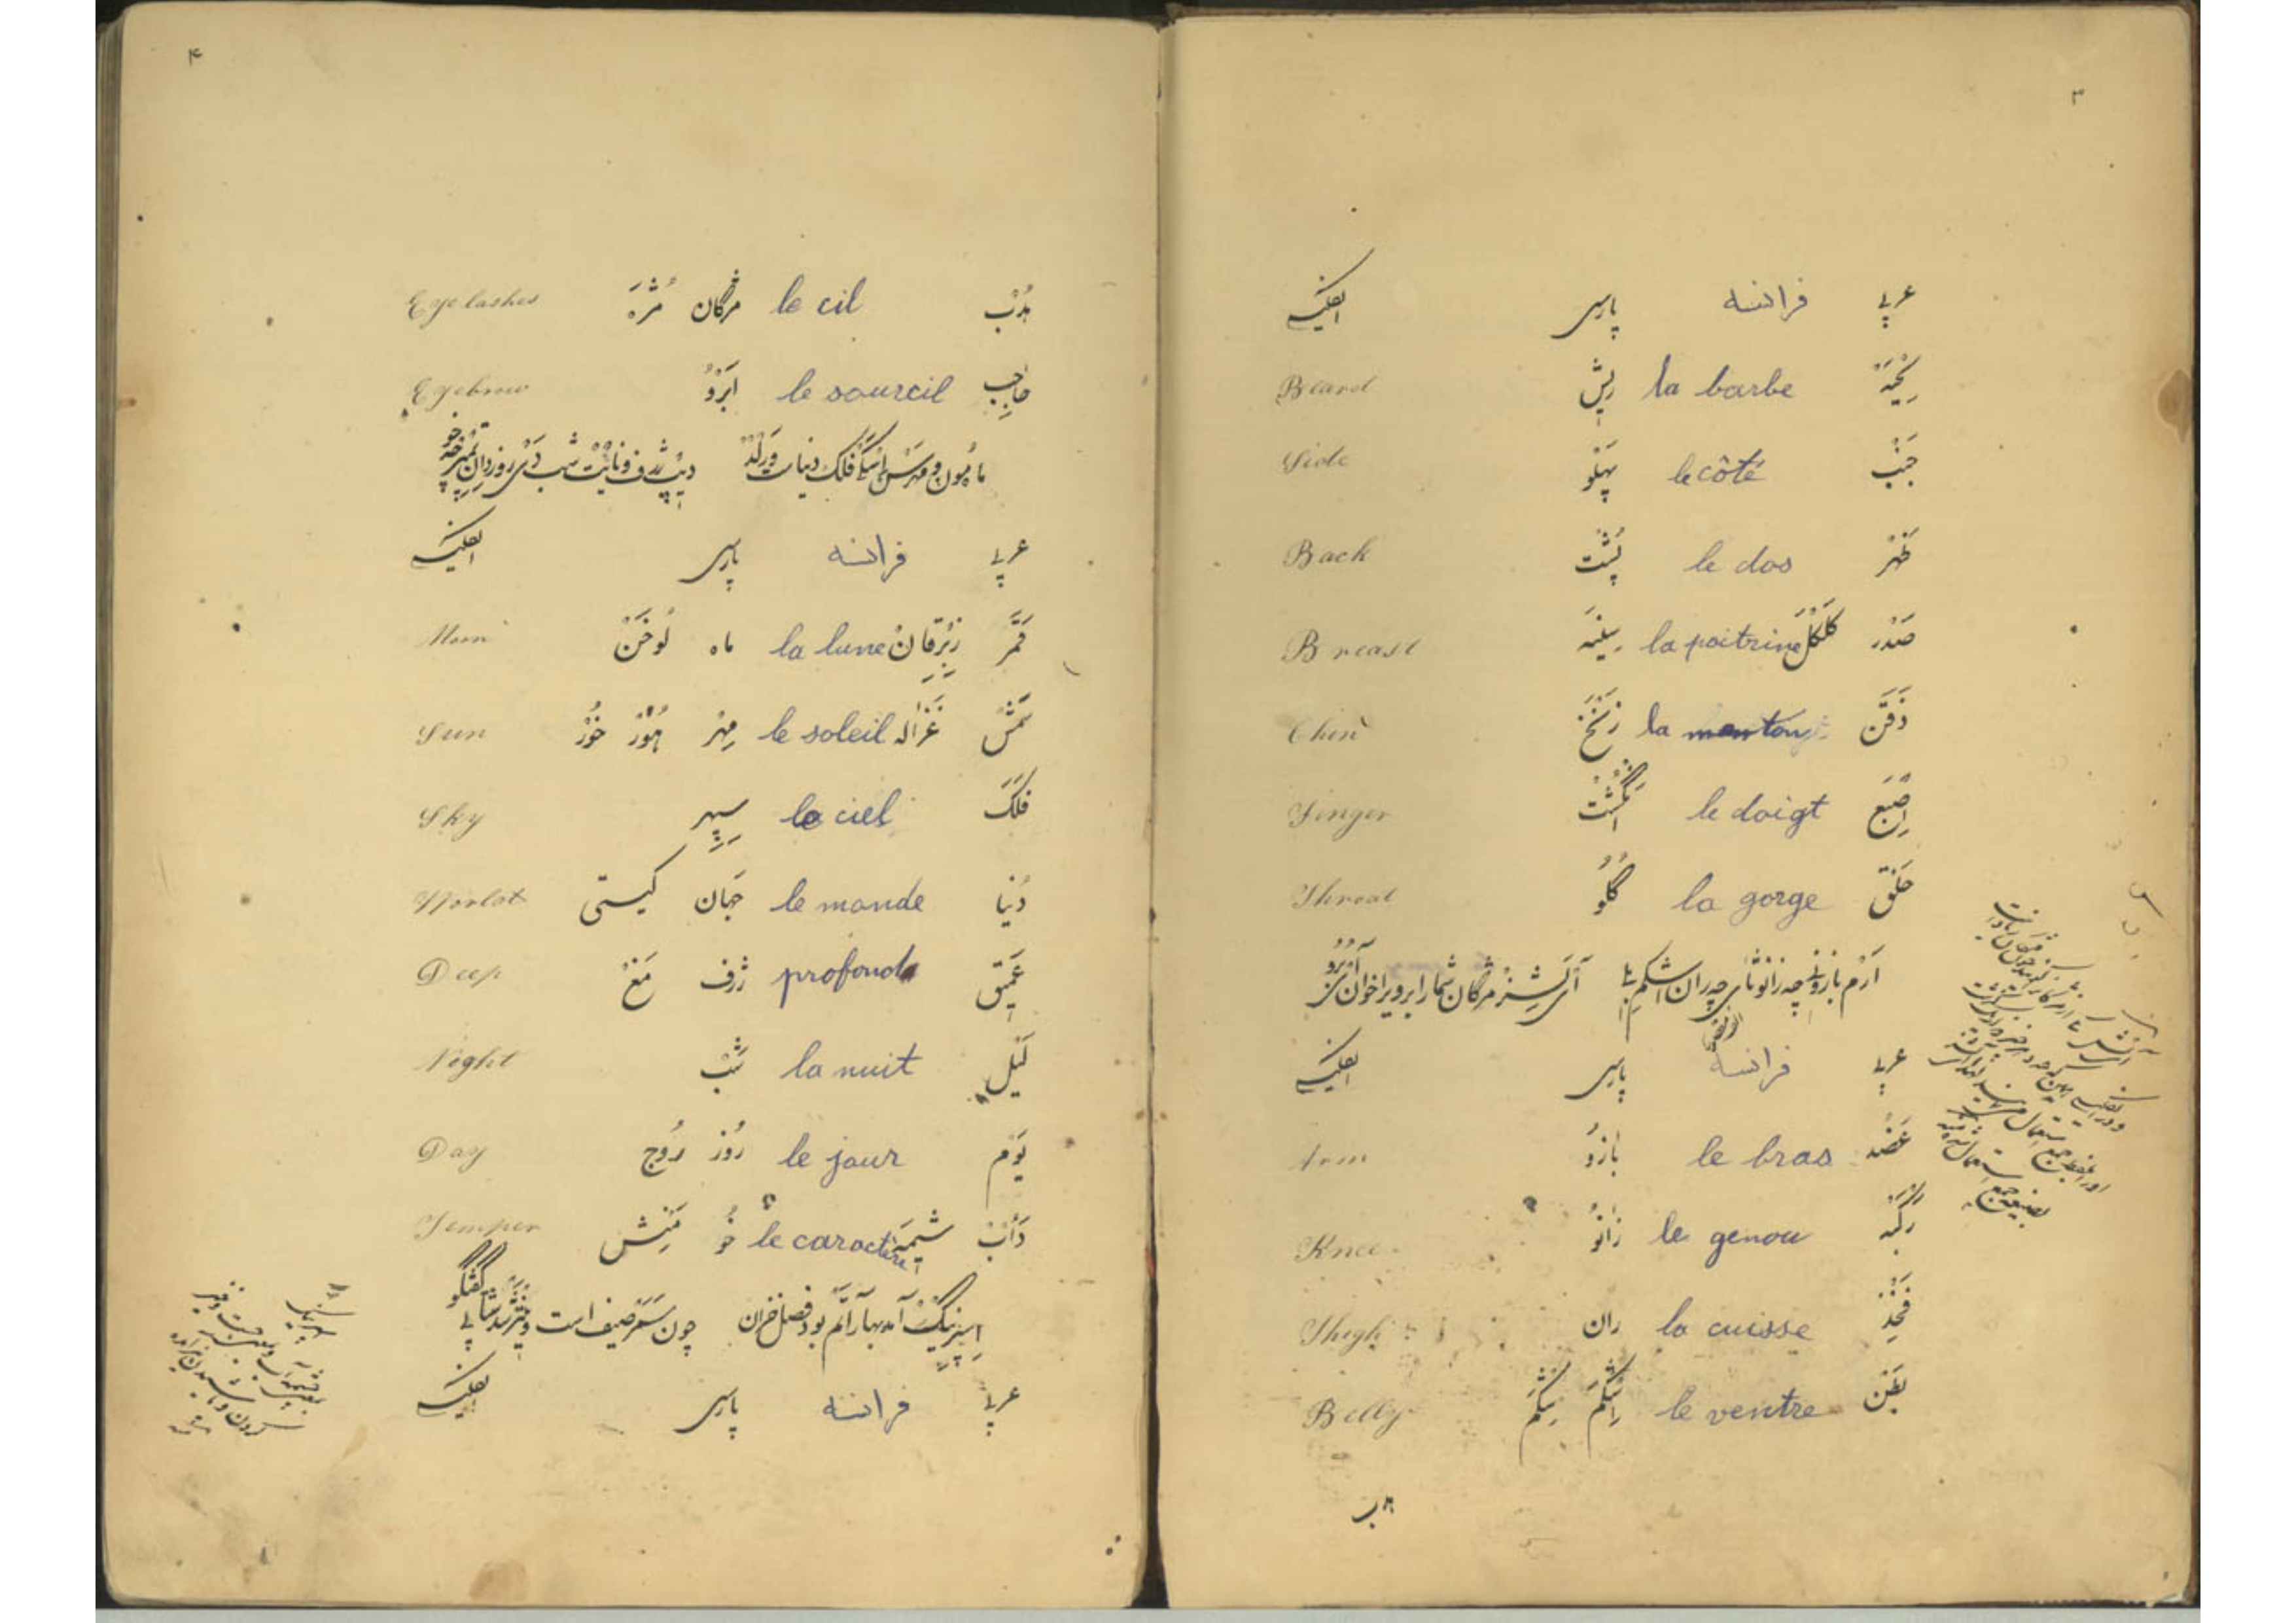 ۳
عربي فرانسه پارسی انگلیسی
لِحْیَة la barbe ریش Beard
جَنْب le côté پَهْلُو Side
ظَهْر le dos پُشْت Back
صَدْر کَلْکَل la poitrine سینَه Breast
ذَقَن la mentong زَنَخ Chin
اِصْبَع le doigt اَنْگُشْت Finger
حَلْق la gorge گُلُو Throat
آرْم بازو نی چه زانو ثای چه ران اشکم بلی آی لَشِز مژگان شمار ابرو بر اخوان آیْبرو
عربي فرانسه پارسی انگلیسی
عَضُد le bras بازُو Arm
رُکْبَه le genou زانُو Knee
فَخِذ la cuisse ران Thigh
بَطْن le ventre اِشْکَم شِکَم Belly
۴
هُدْب le cil مژگان مُژَه Eyelashes
حاجِب le sourcil اَبْرُو Eyebrow
ما مُون و مهر سَن اِسکَی فلک دنیات وَرلْد دیپ ژرف و نایْت شب دَی روز دان تمپر چه خو
عربي فرانسه پارسی انگلیسی
قَمَر زِبْرِقانْ la lune ماه لُوخَنْ Moon
شَمْس غَزاله le soleil مِهْر هُوْر خُوْر Sun
فَلَک le ciel سِپِهر Sky
دُنْیا le monde جَهان گیتی World
عَمیق profond ژرف مَغْ Deep
لَیْل la nuit شَبْ Night
یَوْم le jour رُوز رُوج Day
دَأبْ شیمَه le caractère خُو مَنِش Temper
اِسپرینگ آمد بهار آتَم بود فصل خزان چون سَمَر صیف است وینتر شد شتا بی گفتگو
عربي فرانسه پارسی انگلیسی